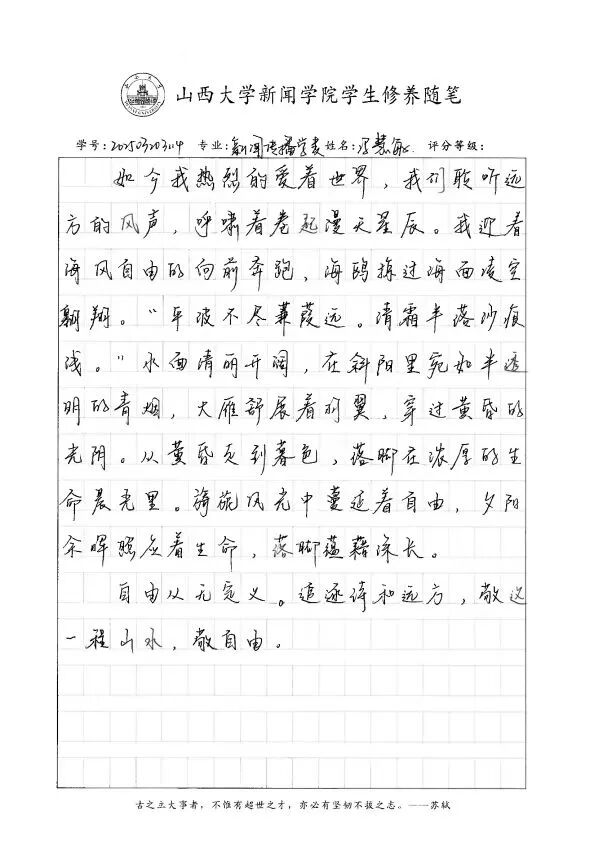 山西大学新闻学院学生修养随笔
学号: 专业:新闻传播学类 姓名:冯慧敏 评分等级:
如今我热烈的爱着世界，我们聆听远
方的风声，呼啸着卷起漫天星辰。我迎着
海风自由的向前奔跑，海鸥掠过海面凌空
翱翔。“平波不尽蒹葭远。清霜半落沙痕
浅。”水面清丽开阔，在斜阳里宛如半透
明的青烟，大雁舒展着羽翼，穿过黄昏的
光阴。从黄昏走到暮色，落脚在浓厚的生
命晨光里。旖旎风光中蔓延着自由，夕阳
余晖照应着生命，落脚蕴藉深长。
自由从无定义。追逐诗和远方，敬这
一程山水，敬自由。
古之立大事者，不惟有超世之才，亦必有坚韧不拔之志。——苏轼